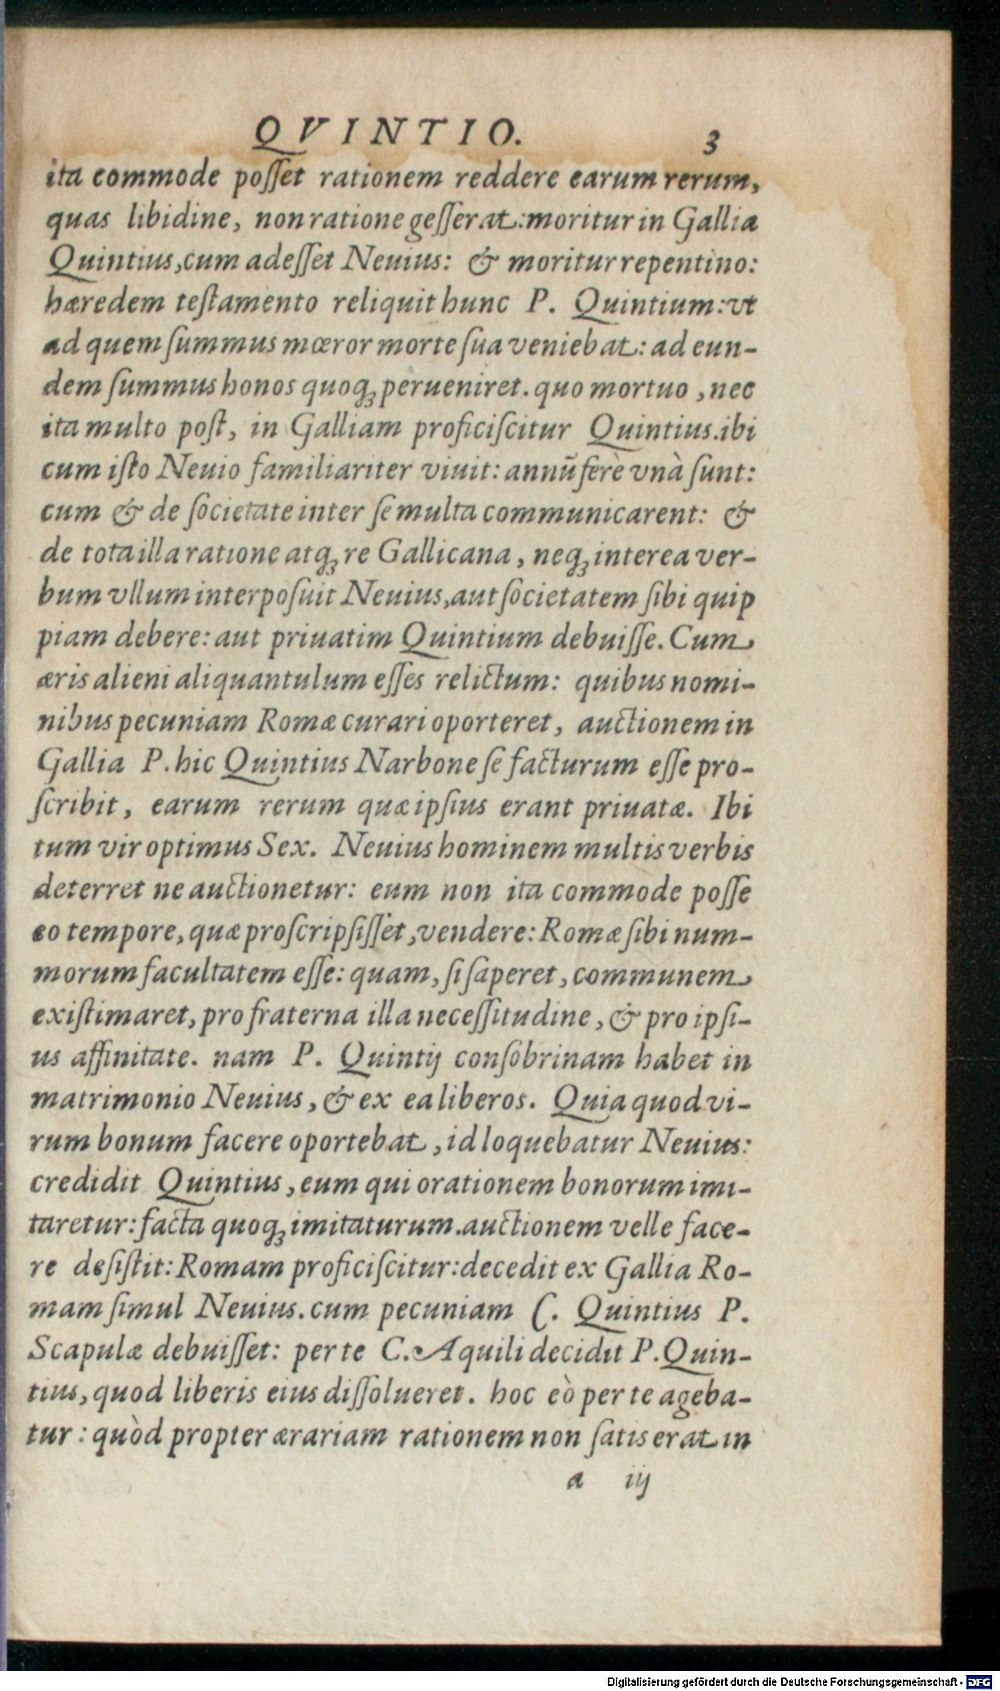 QVINTIO. 3
ita commode poſſet rationem reddere earum rerum,
quas libidine, non ratione geſſerat: moritur in Gallia
Quintius, cum adeſſet Neuius: & moritur repentino:
hæredem teſtamento reliquit hunc P. Quintium: vt
ad quem ſummus mœror morte ſua veniebat: ad eun-
dem ſummus honos quoqꝫ perueniret. quo mortuo, nec
ita multo poſt, in Galliam proficiſcitur Quintius. ibi
cum iſto Neuio familiariter viuit: annũ ferè vnà ſunt:
cum & de ſocietate inter ſe multa communicarent: &
de tota illa ratione atqꝫ re Gallicana, neqꝫ interea ver-
bum vllum interpoſuit Neuius, aut ſocietatem ſibi quip
piam debere: aut priuatim Quintium debuiſſe. Cum
æris alieni aliquantulum eſſes relictum: quibus nomi-
nibus pecuniam Romæ curari oporteret, auctionem in
Gallia P. hic Quintius Narbone ſe facturum eſſe pro-
ſcribit, earum rerum quæ ipſius erant priuatæ. Ibi
tum vir optimus Sex. Neuius hominem multis verbis
deterret ne auctionetur: eum non ita commode poſſe
eo tempore, quæ proſcripſiſſet, vendere: Romæ ſibi num-
morum facultatem eſſe: quam, ſi ſaperet, communem
exiſtimaret, pro fraterna illa neceſſitudine, & pro ipſi-
us affinitate. nam P. Quintij conſobrinam habet in
matrimonio Neuius, & ex ea liberos. Quia quod vi-
rum bonum facere oportebat, id loquebatur Neuius:
credidit Quintius, eum qui orationem bonorum imi-
taretur: facta quoqꝫ imitaturum. auctionem velle face-
re deſiſtit: Romam proficiſcitur: decedit ex Gallia Ro-
mam ſimul Neuius. cum pecuniam C. Quintius P.
Scapulæ debuiſſet: per te C. Aquili decidit P. Quin-
tius, quod liberis eius diſſolueret. hoc eò per te ageba-
tur: quòd propter ærariam rationem non ſatis erat in
a iij
Digitalisierung gefördert durch die Deutsche Forschungsgemeinschaft - DFG